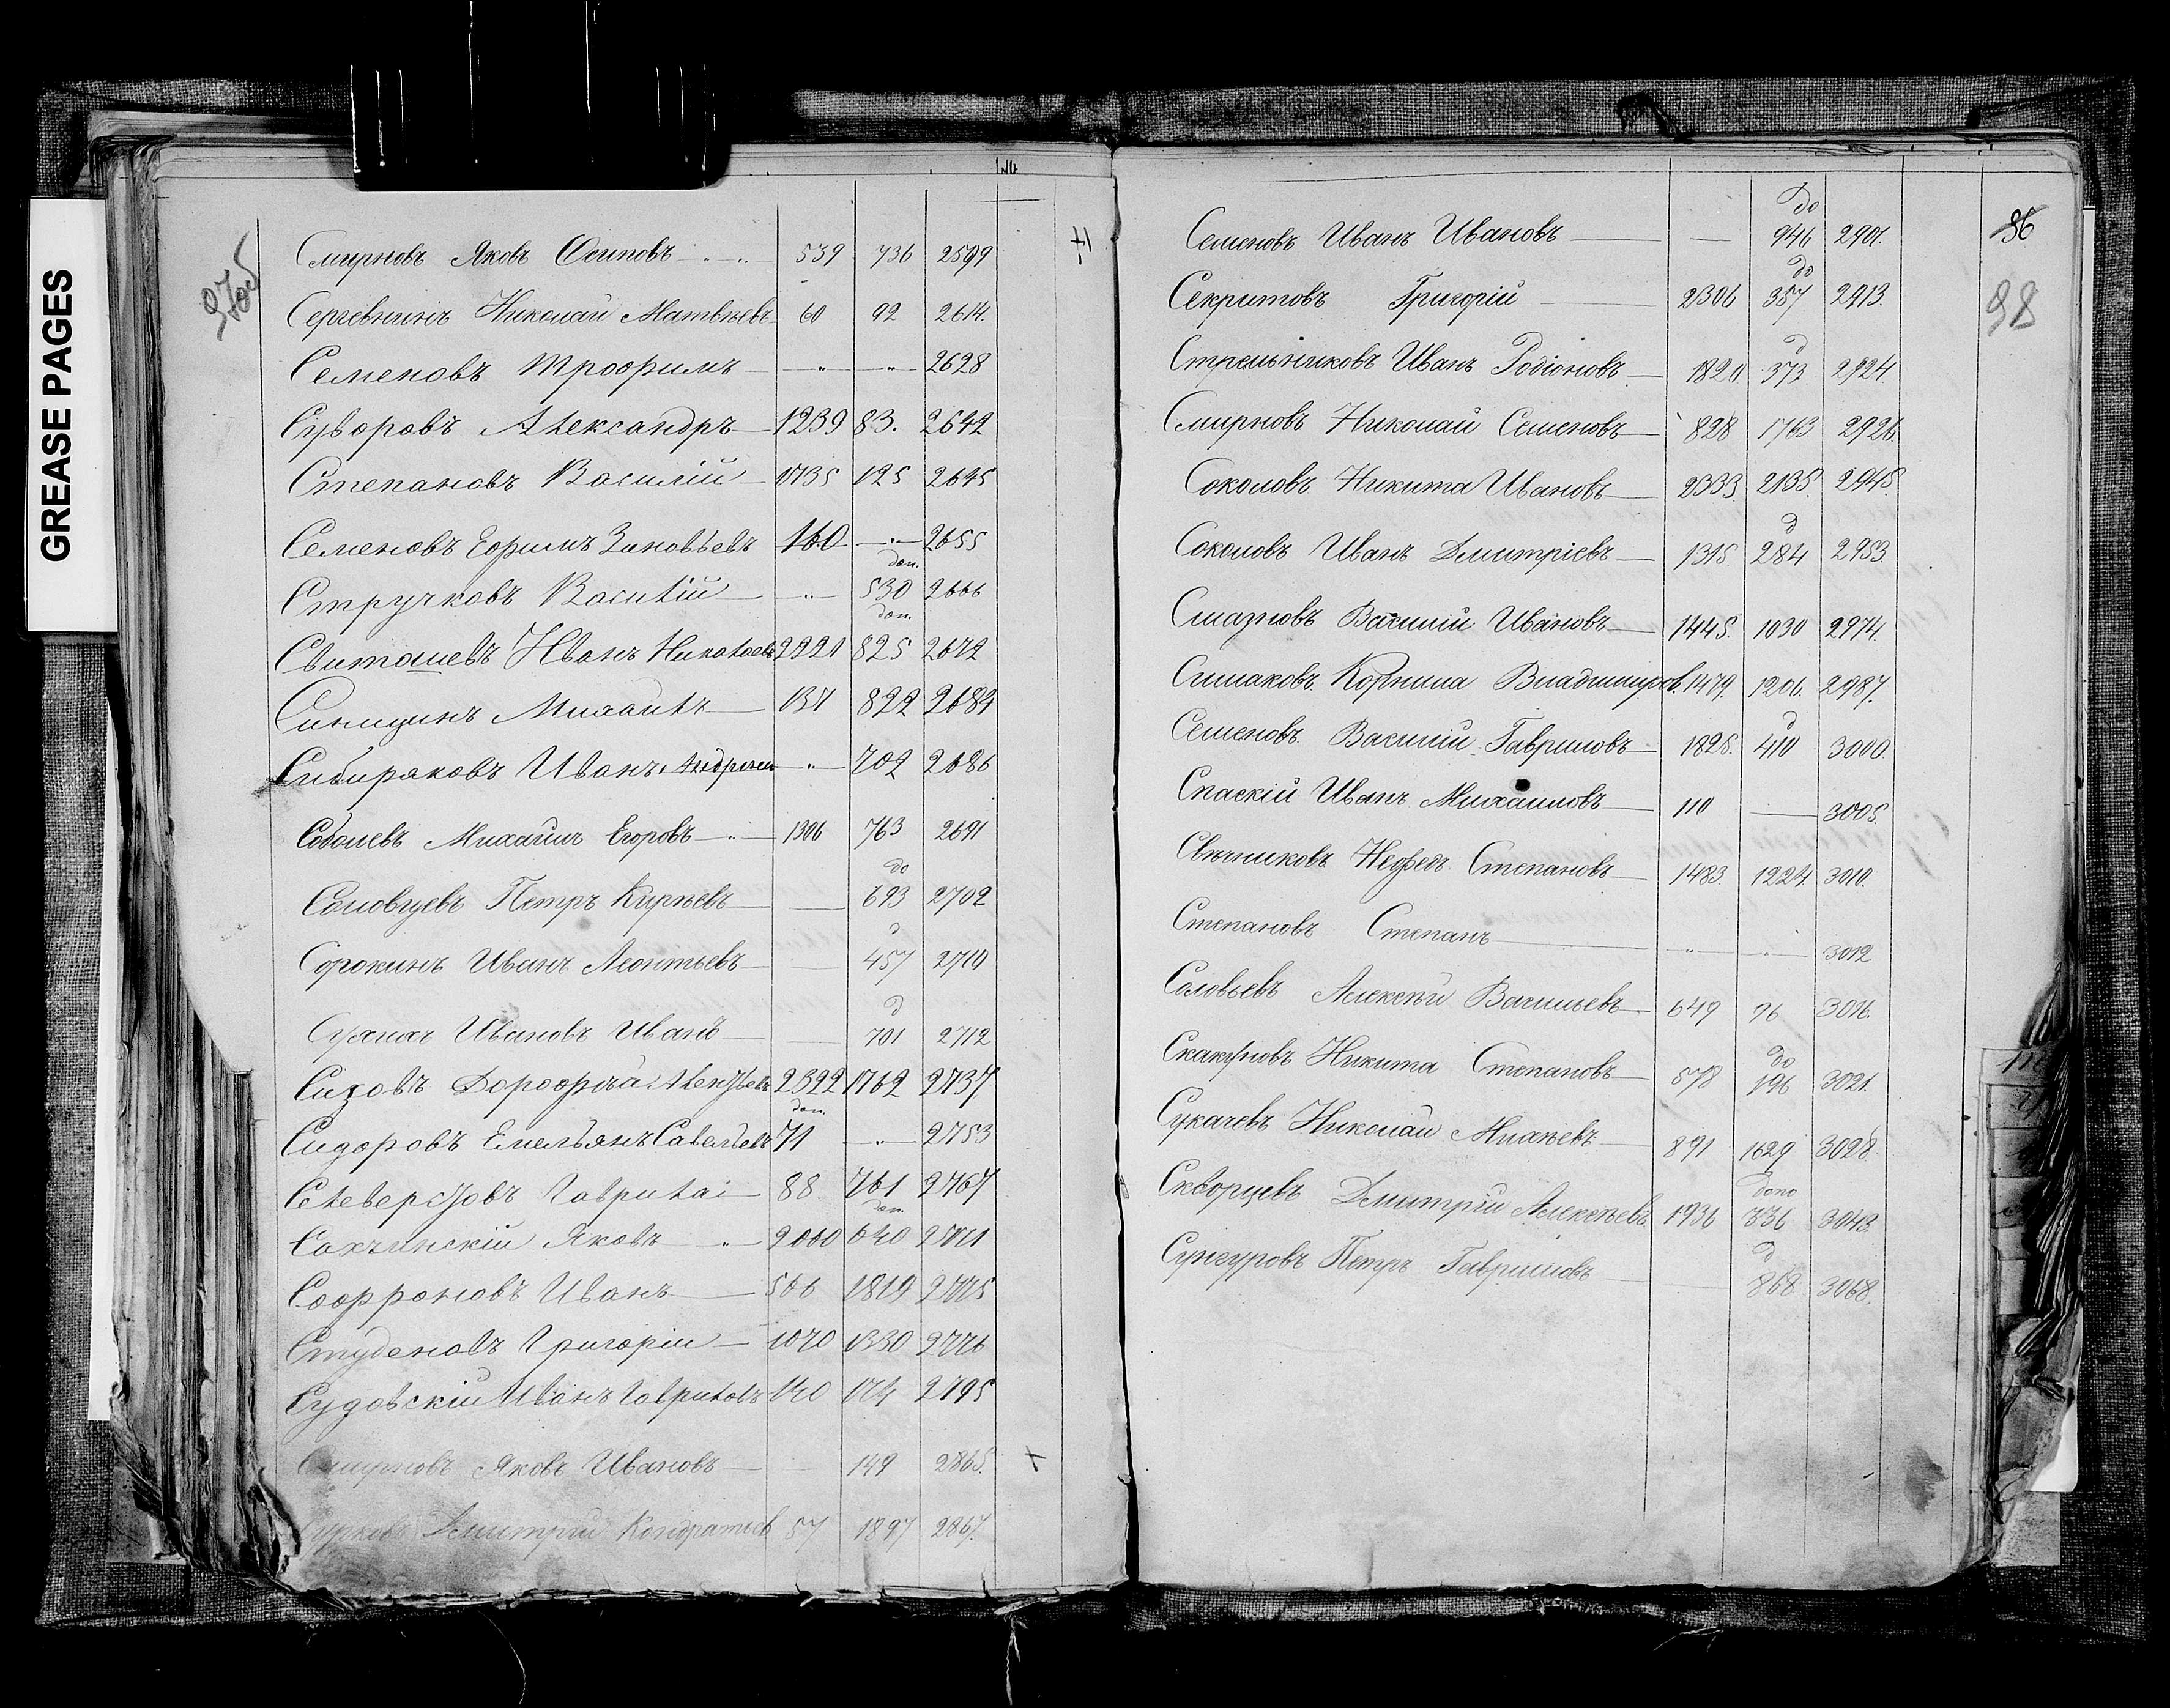 GREASE PAGES
97об
Смирновъ Яковъ Осиповъ 539 736 2599
Сергѣвнинъ Николай Матвѣевъ 60 92 2614.
Семеновъ Трофимъ — „ — „ — 2628
Суворовъ Александръ — 1239 83. 2642
Степановъ Василій — 1735 125 2645
Семеновъ Ефимъ Зиновьевъ 160 — „ — 2655
Стручковъ Василій — „ — доп. 530 2666
Свиташевъ Иванъ Николаевъ 2221 доп. 825 2672
Синицинъ Михаилъ — 137 822 2684
Сибиряковъ Иванъ — „ — 702 2686
Соболевъ Михаилъ Егоровъ — „ — 1306 763 2691
Соловцевъ Петръ Кирѣевъ — — до 693 2702
Сорокинъ Иванъ Леонтьевъ — д 457 2710
Ивановъ Иванъ — д 701 2712
Сизовъ Дорофей 2322 1762 2737
Сидоровъ Емельянъ Савельевъ доп. 71 — „ — 2753
Селеверстовъ Гаврилаі — 88 761 2767
Яковъ „ 2060 доп. 640
Соффроновъ Иванъ — 566 1819 2775
Студеновъ Григорій — 1070 1330 2776
Судовскій Иванъ Гавриловъ 140 174 2795
Смирновъ Яковъ Ивановъ — — 149 2865. +
Дмитрій Кондратьев 57 1897 2867.
Семеновъ Иванъ Ивановъ — — до 946 2901.
86
Секритовъ Григорій — 2306 до 357 2913.
98
Стрельниковъ Иванъ Родіоновъ — 1820 д 373 2924.
Смирновъ Николай Семеновъ — 828 1763 2926.
Соколовъ Никита Ивановъ — 2333 2135. 2945.
Соколовъ Иванъ Дмитріевъ — 1315 д 284 2953.
Смазновъ Василій Ивановъ — 1445. 1030 2974.
Симаковъ Корнила Владимиров. 1479. 1206. 2987.
Семеновъ Василій Гавриловъ — 1825. д 410 3000.
Спаскій Иванъ Михаиловъ — 110 — 3005.
Свѣчниковъ Нефедъ Степановъ — 1483. 1224. 3010.
Степановъ Степанъ — „ — „ — 3012
Соловьевъ Алексѣй Васильевъ — 649 96 3016.
Скакуновъ Никита Степановъ — 578 до 196 3021.
Сукачевъ Николай Михѣевъ — 891 1629 3028.
Скворцевъ Дмитрій Алексѣевъ 1936 допо 336 3043.
Сунгуровъ Петръ Гавриловъ — — д 868 3068.